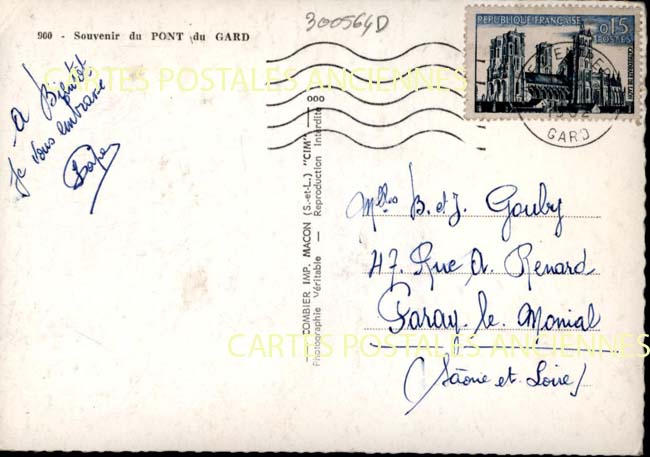 300564D
960 - Souvenir du PONT du GARD
RÉPUBLIQUE FRANÇAISE
0,15
POSTES
GARD
A Bientôt
Je vous embrasse
CARTES POSTALES ANCIENNES
COMBIER IMP. MACON (S.-et-L.) "CIM"
Photographie Véritable — Reproduction Interdite
Mlles B. et J. Gouby
47. Rue A. Renard
Paray. le. Monial
(Saône et Loire)
CARTES POSTALES ANCIENNES